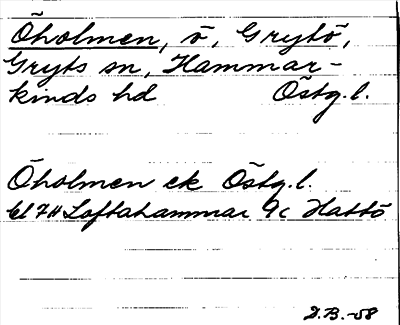 Öholmen, ö, Grytö,
Gryts sn, Hammar-
kinds hd Östg.l.
Öholmen ek Östg.l.
bl 7H Loftahammar 9c Hattö
J.B.-58